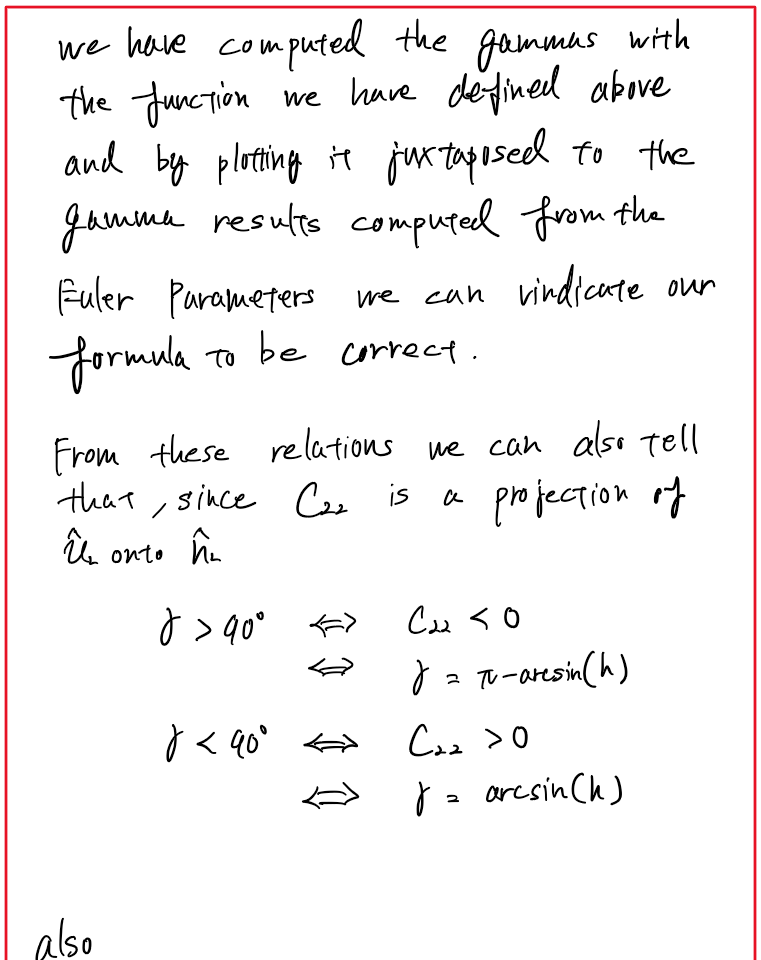 we have computed the gammas with
the function we have defined above
and by plotting it juxtaposed to the
gamma results computed from the
Euler Parameters we can vindicate our
formula to be correct.
From these relations we can also tell
that, since C₂₂ is a projection of
û₂ onto n̂₂
γ > 90° ⇔ C₂₂ < 0
⇔ γ = π-arcsin(h)
γ < 90° ⇔ C₂₂ > 0
⇔ γ = arcsin(h)
also